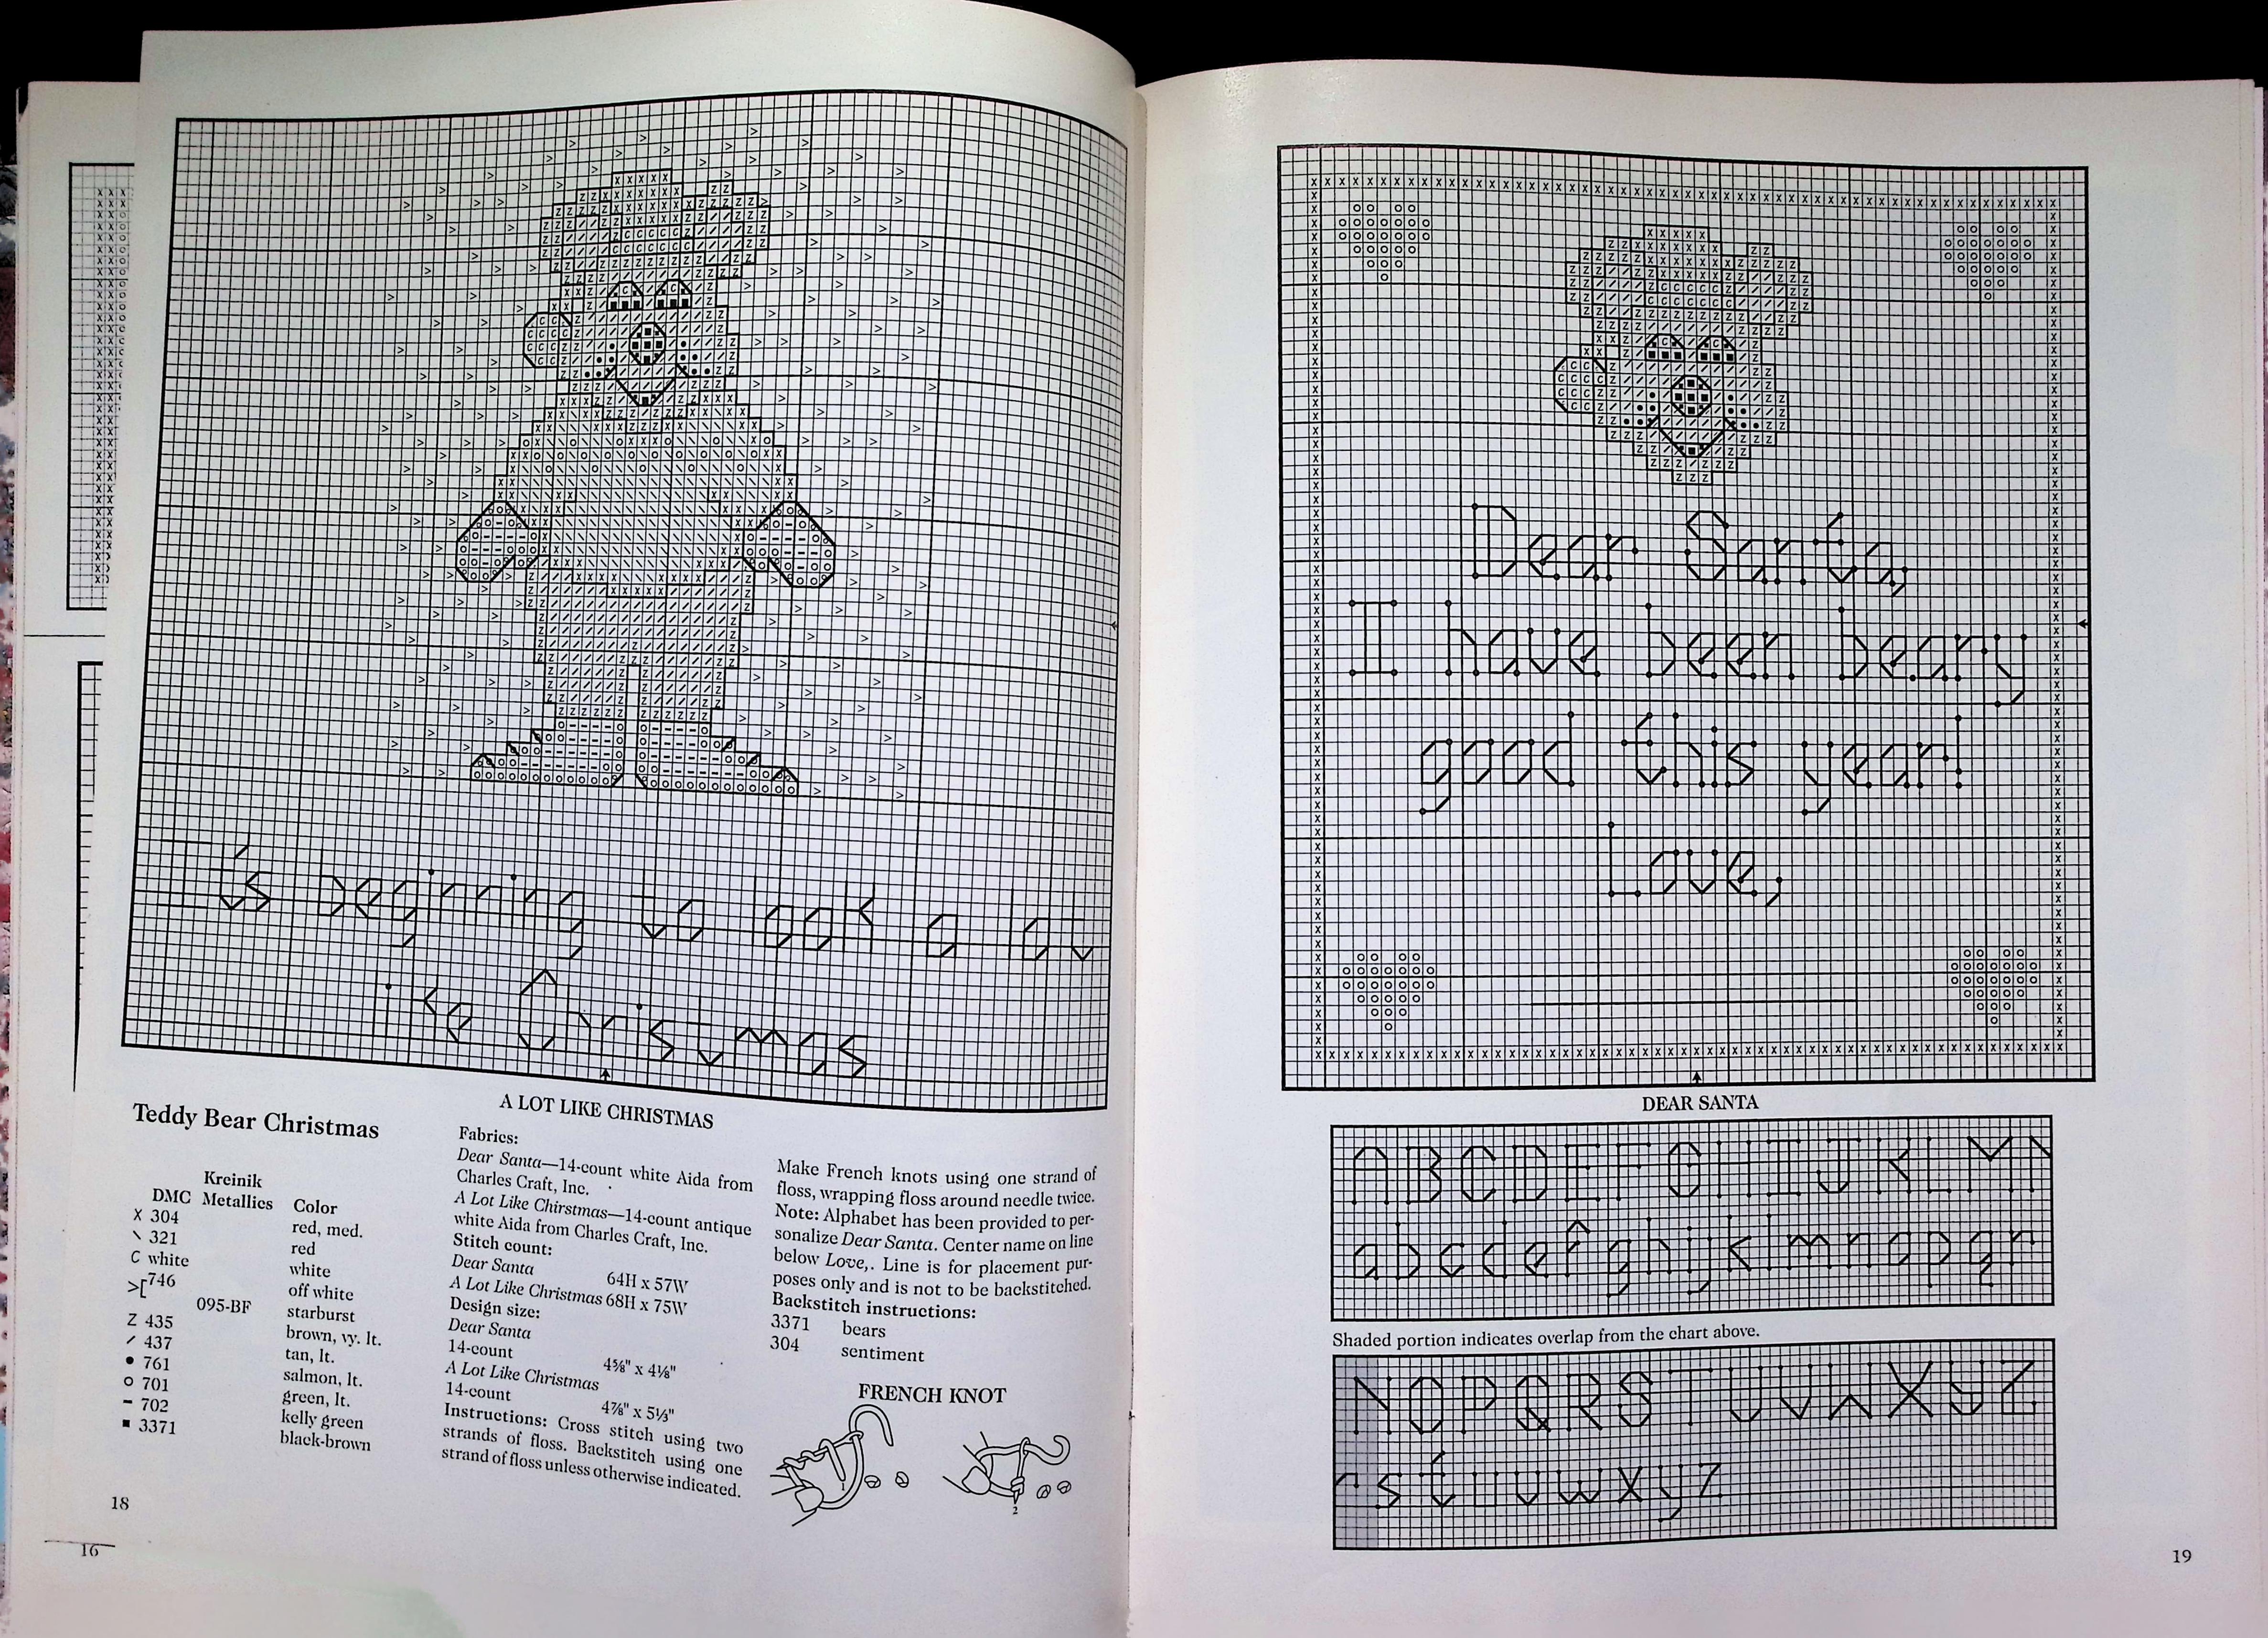 It's begining to look a lot
like Christmas
A LOT LIKE CHRISTMAS
Teddy Bear Christmas
Kreinik
DMC Metallics Color
X 304 red, med.
\ 321 red
C white white
>[ 746 off white
095-BF starburst
Z 435 brown, vy. lt.
/ 437 tan, lt.
● 761 salmon, lt.
O 701 green, lt.
- 702 kelly green
■ 3371 black-brown
18
16
Fabrics:
Dear Santa—14-count white Aida from
Charles Craft, Inc.
A Lot Like Chirstmas—14-count antique
white Aida from Charles Craft, Inc.
Stitch count:
Dear Santa 64H x 57W
A Lot Like Christmas 68H x 75W
Design size:
Dear Santa
14-count 4⅝" x 4⅛"
A Lot Like Christmas
14-count 4⅞" x 5⅓"
Instructions: Cross stitch using two
strands of floss. Backstitch using one
strand of floss unless otherwise indicated.
Make French knots using one strand of
floss, wrapping floss around needle twice.
Note: Alphabet has been provided to per-
sonalize Dear Santa. Center name on line
below Love,. Line is for placement pur-
poses only and is not to be backstitched.
Backstitch instructions:
3371 bears
304 sentiment
FRENCH KNOT
1
2
Dear Santa,
I have been beary
good this year.
Love,
DEAR SANTA
A B C D E F G H I J K L M N
a b c d e f g h i j k l m n o p q r
Shaded portion indicates overlap from the chart above.
N O P Q R S T U V W X Y Z
r s t u v w x y z
19